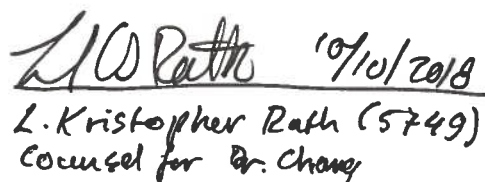 10/10/2018
L. Kristopher Rath (5749)
Counsel for Dr. Chang